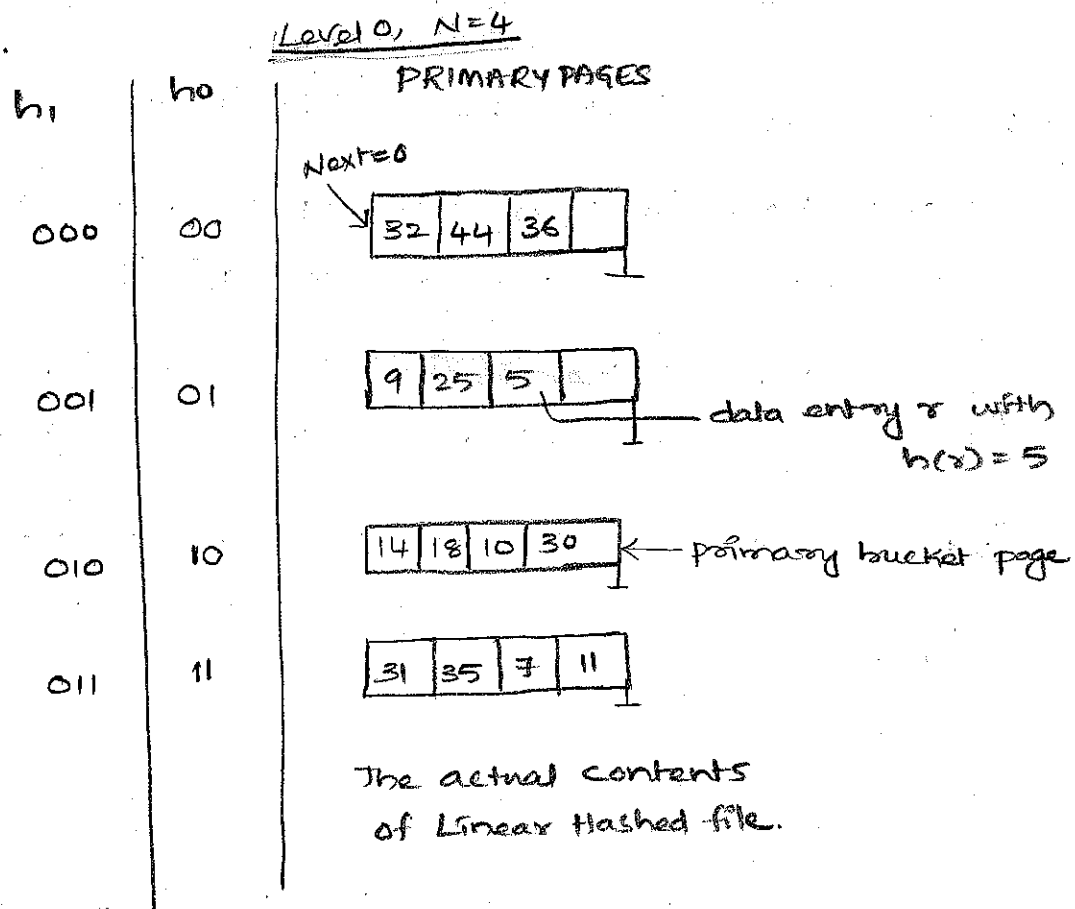 Level 0, N=4
h1 h0 PRIMARY PAGES
Next=0
000 00 32 44 36
001 01 9 25 5
data entry r with
h(r) = 5
010 10 14 18 10 30 primary bucket page
011 11 31 35 7 11
The actual contents
of Linear Hashed file.